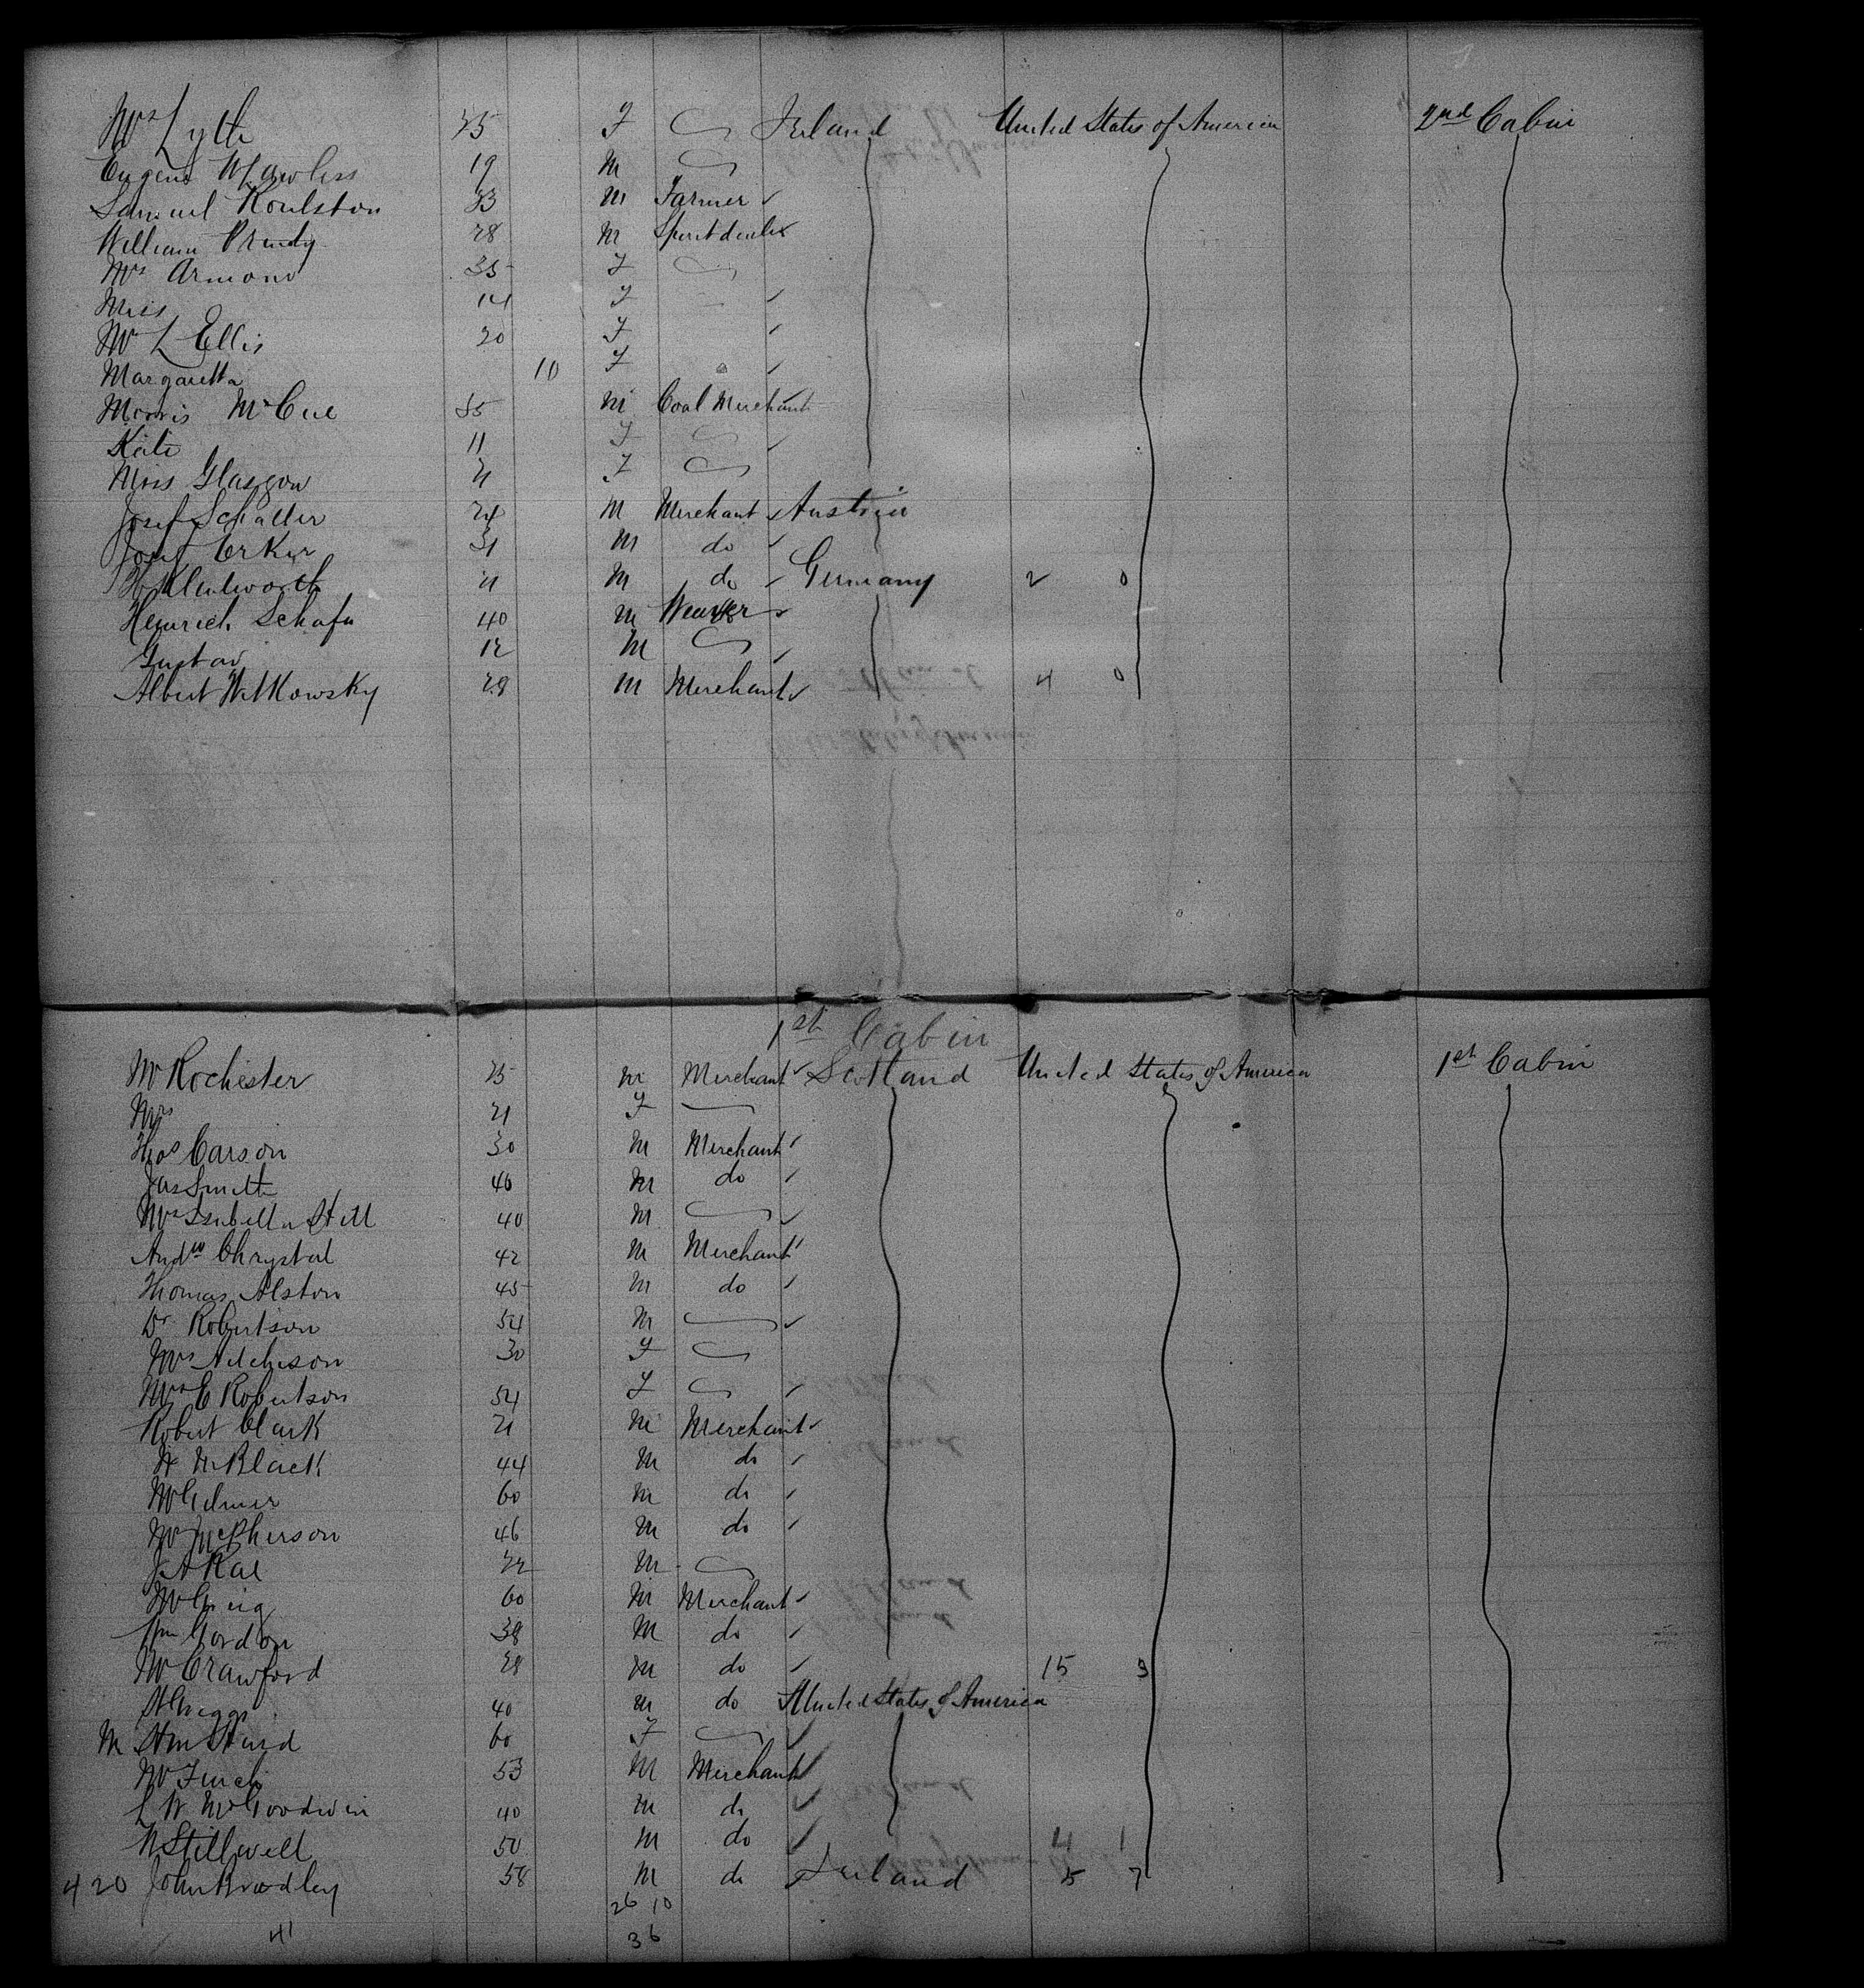 Mrs Lyth 25 F Ireland United States of America 2nd Cabin
Eugene W Lawless 19 M
Samuel Roulston 33 M Farmer
William Prundy 28 M Spirit dealer
Mrs Armond 35 F
Miss 14 F
Mrs L Ellis 20 F
Margaretta 10 F
Morris McCue 35 M Coal Merchant
Kate 11 F
Miss Glasgow 21 F
Josef Schaller 24 M Merchant Austria
Josef Erker 31 M do
Klulworth 21 M do Germany 2 0
Heinrich Schafu 40 M Weaver
Gustav 12 M
Albert Witkowsky 28 M Merchant 4 0
1st Cabin
Mr Rochester 25 M Merchant Scotland United States of America 1st Cabin
Mrs 21 F
Thos Carson 30 M Merchant
Jas Smith 40 M do
Mrs Isabella Still 40 M
Andw Chrystal 42 M Merchant
Thomas Alston 45 M do
Dr Robertson 54 M
Mrs Aitchison 30 F
Mrs E Robertson 54 F
Robert Clark 21 M Merchant
Black 44 M do
Mr Gilmer 60 M do
Mr McPherson 46 M do
J A Rae 22 M
Mr Greig 60 M Merchant
Wm Gordon 38 M do
Mr Crawford 28 M do 15 3
Griggs 40 M do United States of America
M 60 F
Mr Finch 53 M Merchant
L W McGoodwin 40 M do
N Stillwell 50 M do 4 1
420 John Bradley 58 M do Ireland 5 7
26 10
41 36